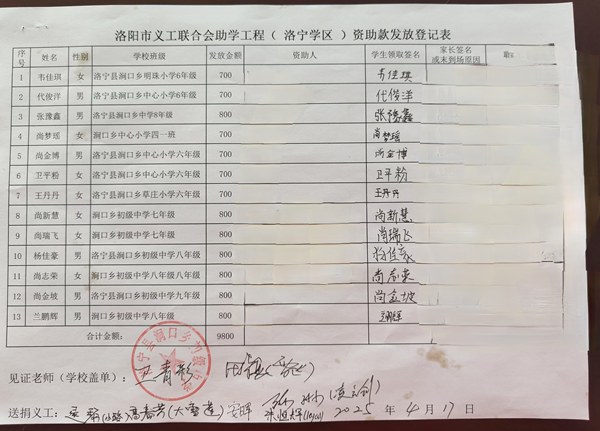 洛阳市义工联合会助学工程（ 洛宁学区 ）资助款发放登记表
序号 姓名 性别 学校班级 发放金额 资助人 学生领取签名 家长签名或未到场原因
1 韦佳琪 女 洛宁县涧口乡明珠小学6年级 700 韦佳琪
2 代俊洋 男 洛宁县涧口乡中心小学6年级 700 代俊洋
3 张豫鑫 男 洛宁县涧口乡中学8年级 800 张豫鑫
4 尚梦瑶 女 涧口乡中心小学四一班 700 尚梦瑶
5 尚金博 男 洛宁县涧口乡中心小学六年级 700 尚金博
6 卫平粉 女 洛宁县涧口乡中心小学六年级 700 卫平粉
7 王丹丹 女 洛宁县涧口乡草庄小学六年级 700 王丹丹
8 尚新慧 女 涧口乡初级中学七年级 800 尚新慧
9 尚瑞飞 女 涧口乡初级中学七年级 800 尚瑞飞
10 杨佳豪 男 洛宁县涧口乡初级中学八年级 800 杨佳豪
11 尚志荣 女 涧口乡初级中学八年级八年级 800 尚志荣
12 尚金坡 男 洛宁县涧口乡初级中学九年级 800 尚金坡
13 兰鹏辉 男 涧口乡初级中学八年级八年级 800
合计金额： 9800
见证老师（学校盖单）：
送捐义工： 高春芳(大雪莲) 2025 年 4 月 17 日